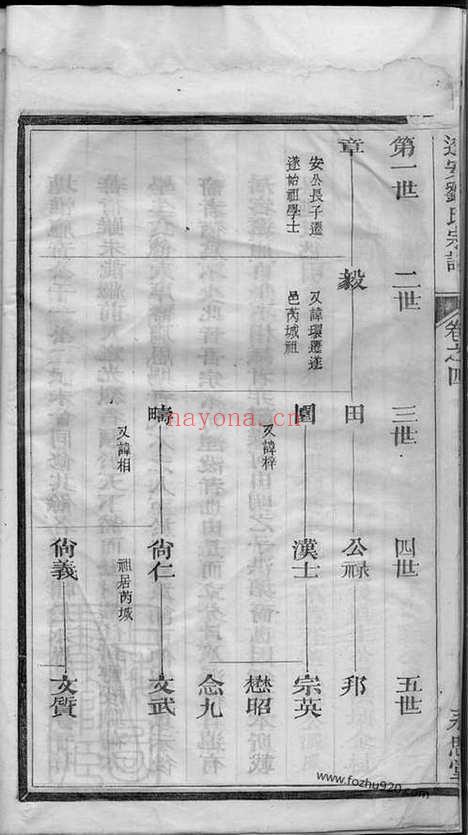 遂安劉氏宗譜
卷之四
永思堂
第一世
二世
三世
四世
五世
章
安公長子遷
遂始祖學士
毅
又諱環遷進
邑芮城祖
田
公祿
邦
園
又諱梓
漢士
宗英
懋昭
念九
疇
又諱相
尙仁
祖居芮城
文武
尙義
文質
nayona.cn
www.fozhu920.com